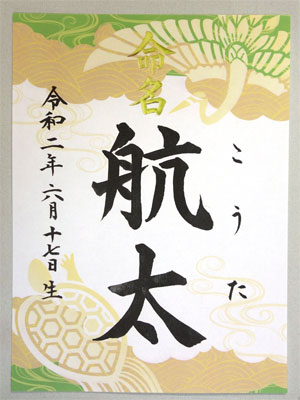 命名
こうた
航太
令和二年六月十七日生